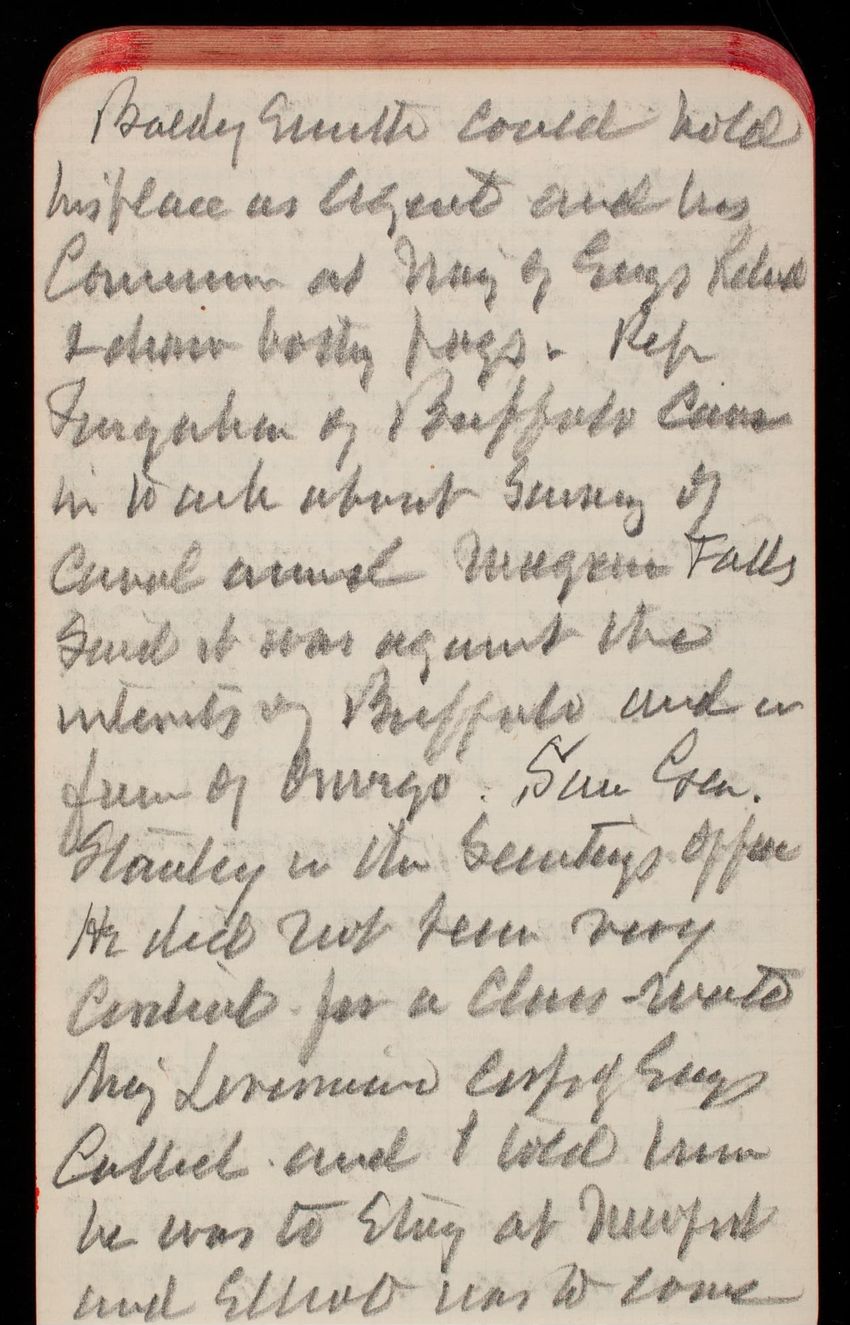 Baldy Smith could hold
his place as Agent and his
Commn as Maj of Engs Retired
& draw both pays. Rep
Farquhar of Buffalo came
in to ask about Survey of
Canal around Niagara Falls
Said it was against the
interests of Buffalo and in
favor of Oswego. Saw Gen.
Stanley in the Secretarys office
He did not seem very
Cordial for a Class-mate
Maj Livermore Corps of Engs
Called and I told him
he was to Stay at Newport
and Elliot was to come